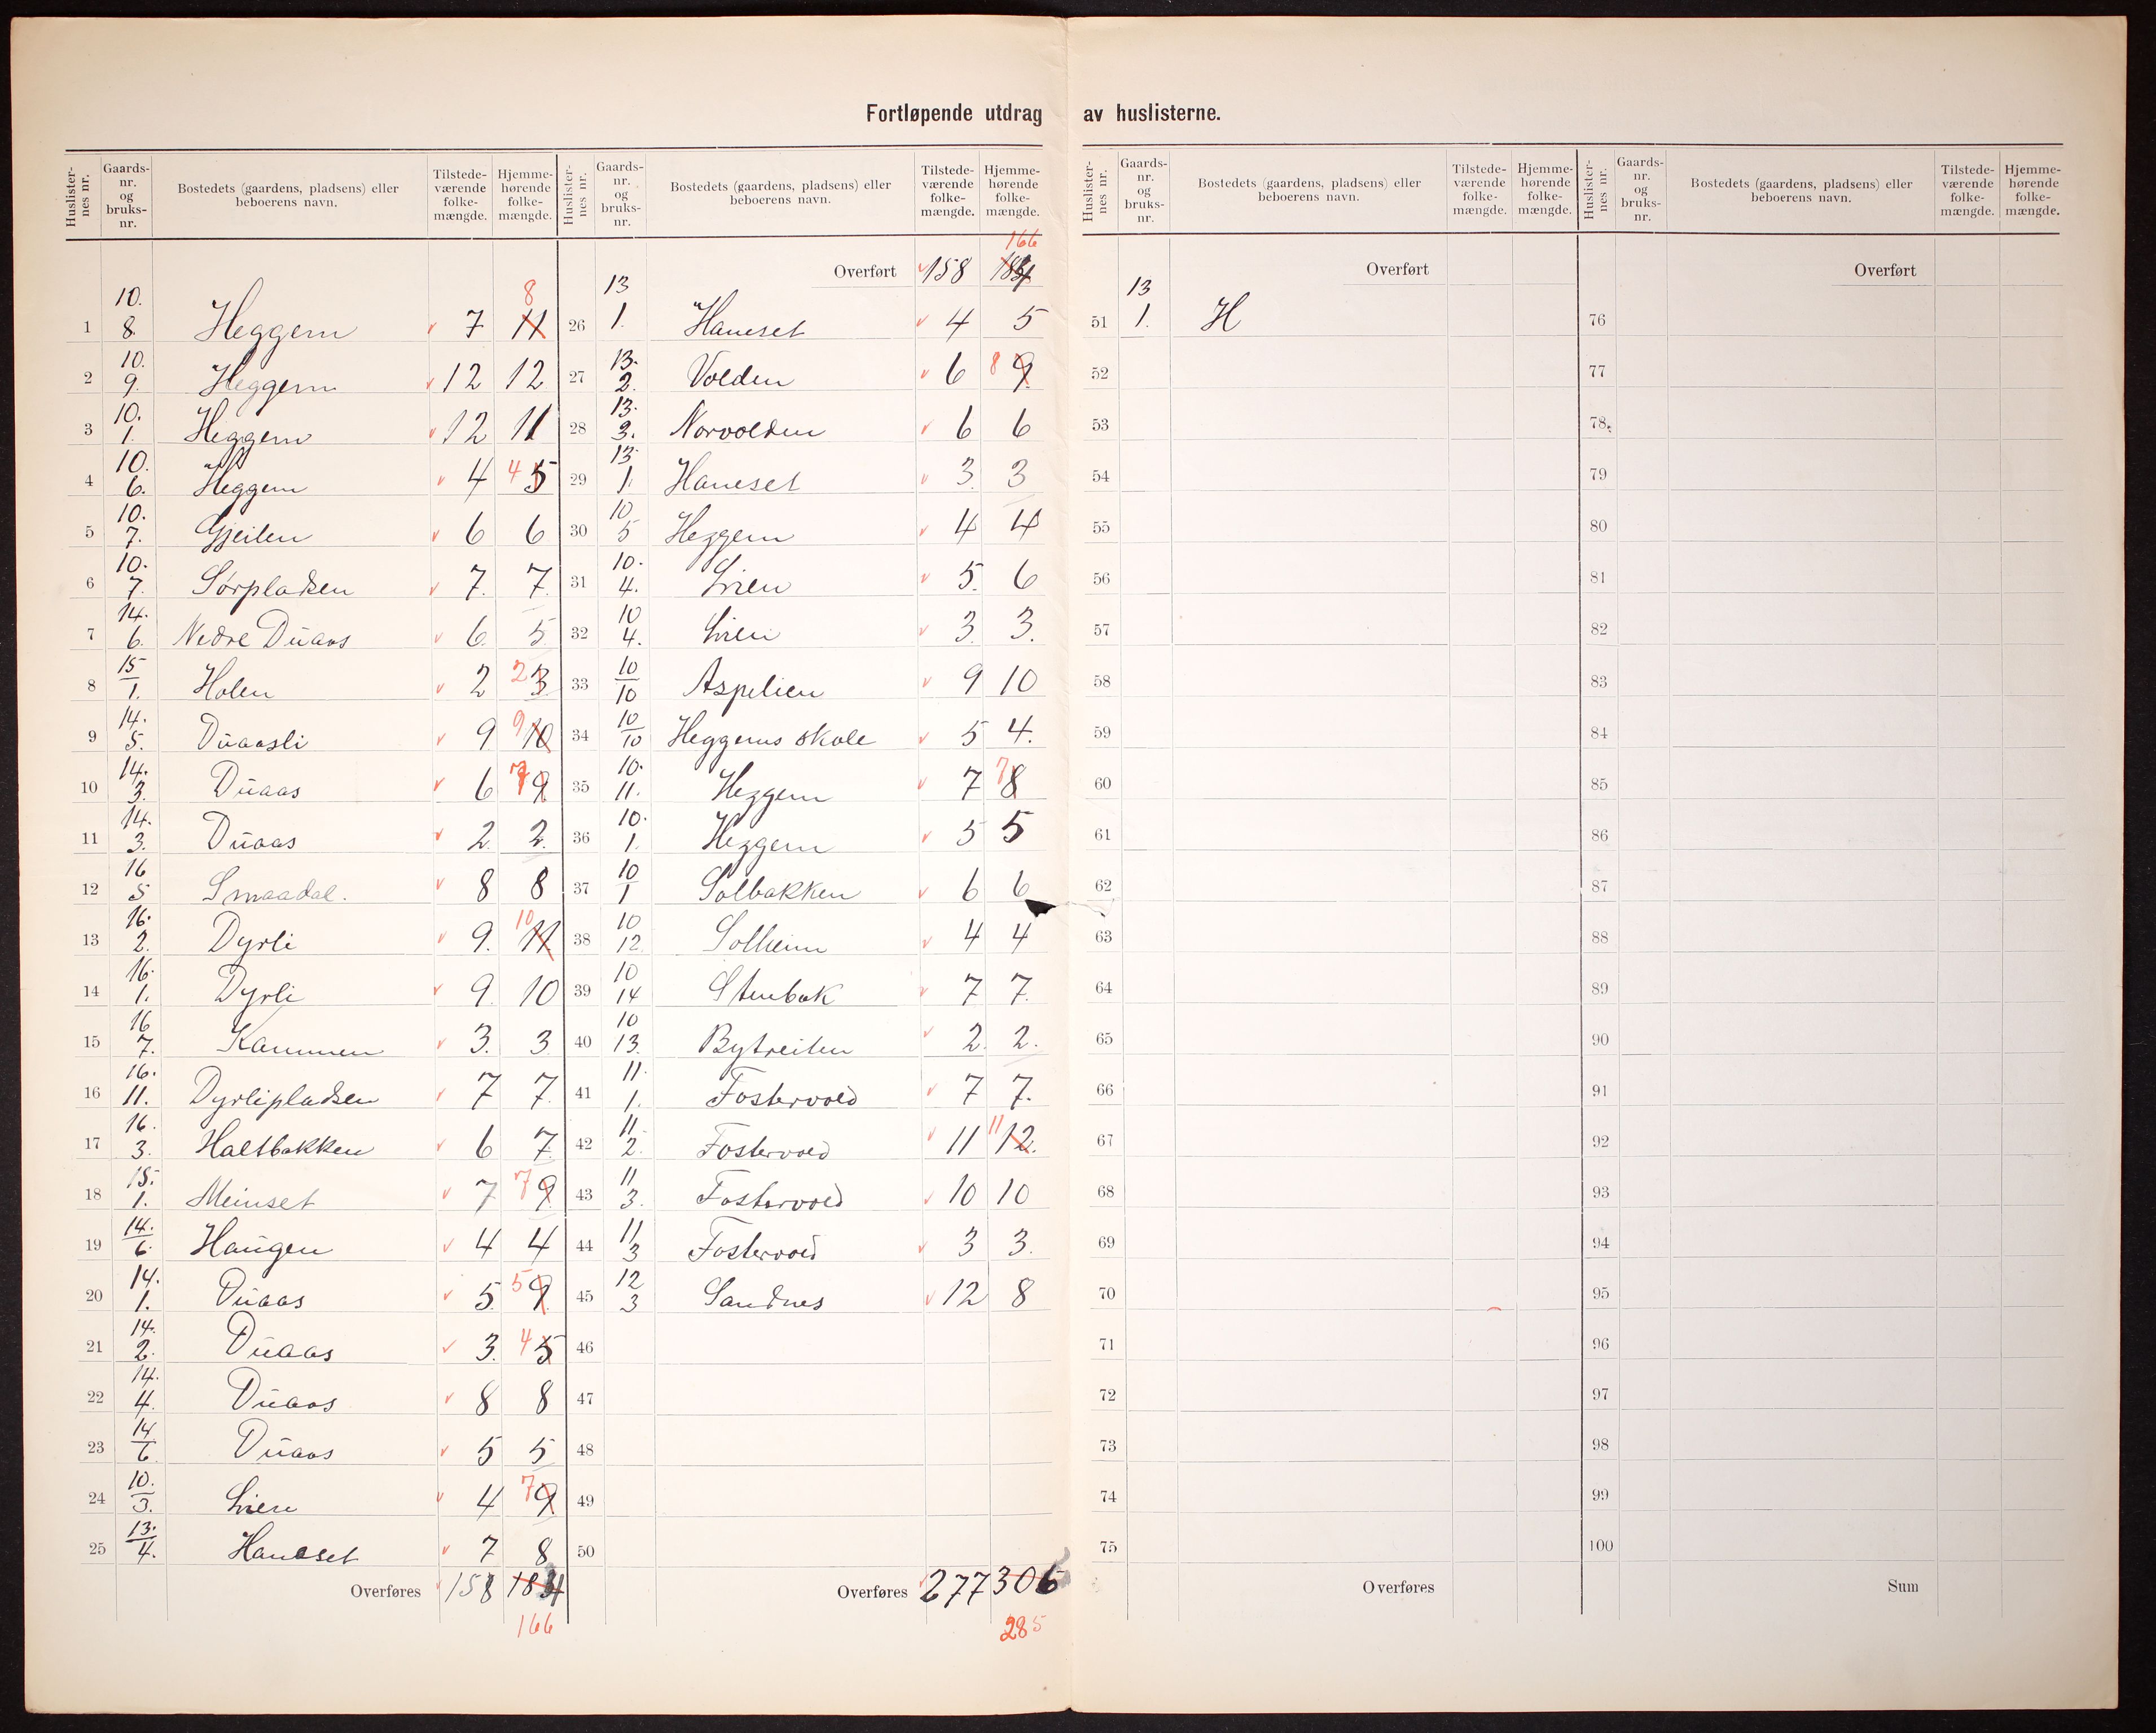 Fortløpende utdrag av huslisterne.
Huslister-nes nr. Gaards-nr. og bruks-nr. Bostedets (gaardens, pladsens) eller beboerens navn. Tilstede-værende folke-mængde. Hjemme-hørende folke-mængde.
1 10. 8. Heggem 7 11 8
2 10. 9. Heggem 12 12
3 10. 1. Heggem 12 11
4 10. 6. Heggem 4 4 5
5 10. 7. Gjeilen 6 6
6 10. 7. Sørpladsen 7. 7.
7 14. 6. Nedre Duaas 6 5
8 15 1. Holen 2 2 3
9 14. 5. Duaasli 9 9 10
10 14. 3. Duaas 6 7 9
11 14. 3. Duaas 2 2
12 16 5 Smaadal. 8 8
13 16. 2. Dyrli 9. 10 11
14 16. 1. Dyrli 9. 10
15 16 7. Kammen 3. 3
16 16. 11. Dyrlipladsen 7 7.
17 16. 3. Haltbakken 6 7
18 15. 1. Meinset 7 7 9
19 14. 6. Haugen 4 4
20 14. 1. Duaas 5 5 9
21 14. 2. Duaas 3. 4 5
22 14. 4. Duaas 8 8
23 14 6. Duaas 5 5
24 10. 3. Lien 4 7 9
25 13. 4. Hanaset 7 8
Overføres 158 184
166
Huslister-nes nr. Gaards-nr. og bruks-nr. Bostedets (gaardens, pladsens) eller beboerens navn. Tilstede-værende folke-mængde. Hjemme-hørende folke-mængde.
166
Overført 158 184
26 13 1. Haneset 4 5
27 13. 2. Volden 6 8 9
28 13. 3. Norvolden 6 6
29 13. 1. Haneset 3. 3
30 10 5 Heggem 4 4
31 10. 4. Lien 5. 6
32 10 4. Lien 3. 3.
33 10 10 Aspelien 9 10
34 10 10 Heggems skole 5 4.
35 10. 11. Heggem 7 7 8
36 10. 1. Heggem 5 5
37 10 1 Solbakken 6 6
38 10 12 Solheim 4 4
39 10 14 Stenbak 7 7.
40 10 13. Bytreiten 2. 2.
41 11. 1. Fostervold 7 7.
42 11. 2. Fostervold 11 11 12.
43 11 3. Fostervold 10 10
44 11 3 Fostervold 3 3.
45 12 3 Sandnes 12 8
46
47
48
49
50
Overføres 277 306
285
Huslister-nes nr. Gaards-nr. og bruks-nr. Bostedets (gaardens, pladsens) eller beboerens navn. Tilstede-værende folke-mængde. Hjemme-hørende folke-mængde.
Overført
51 13 1. H
52
53
54
55
56
57
58
59
60
61
62
63
64
65
66
67
68
69
70
71
72
73
74
75
Overføres
Huslister-nes nr. Gaards-nr. og bruks-nr. Bostedets (gaardens, pladsens) eller beboerens navn. Tilstede-værende folke-mængde. Hjemme-hørende folke-mængde.
Overført
76
77
78
79
80
81
82
83
84
85
86
87
88
89
90
91
92
93
94
95
96
97
98
99
100
Sum